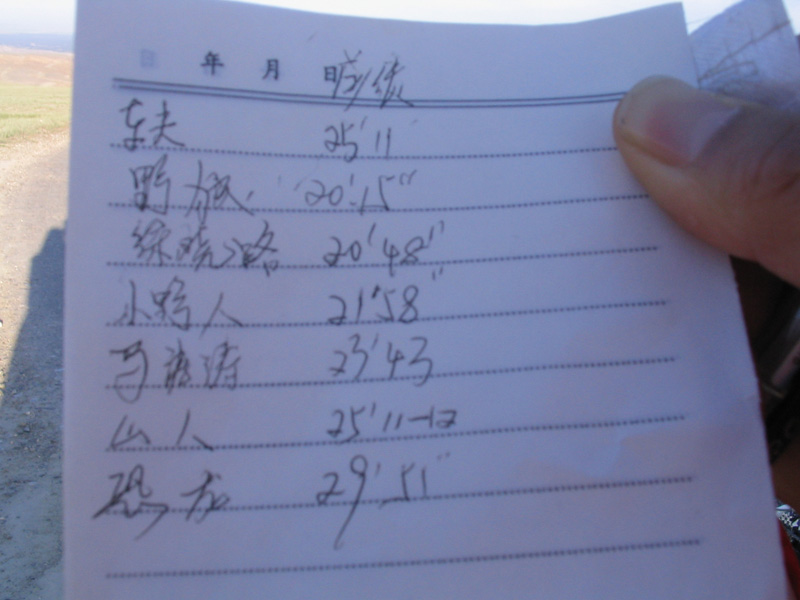 年 月 日
车夫 25'11
野 20'15"
20'48"
小野人 21'58"
马 涛 23'43
山人 25'11-12
恐龙 29'51"